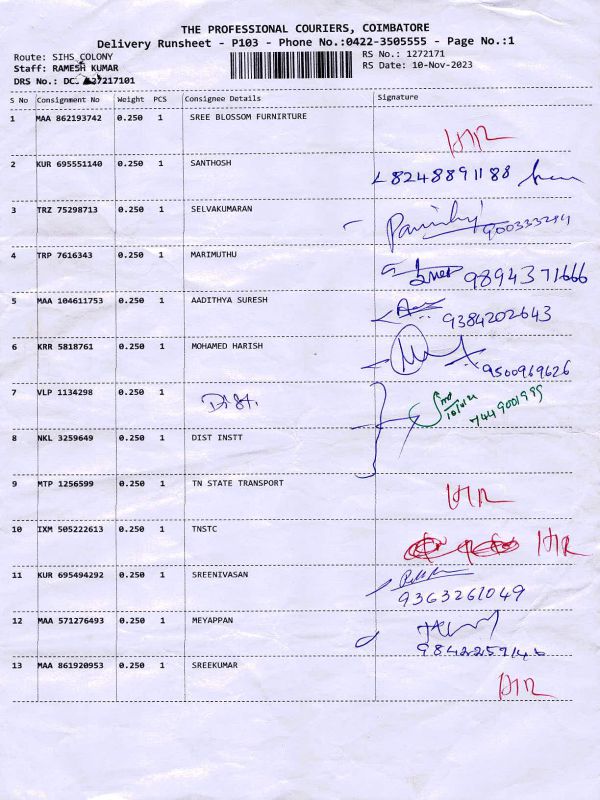 THE PROFESSIONAL COURIERS, COIMBATORE
Delivery Runsheet - P103 - Phone No.:0422-3505555 - Page No.:1
Route: SIHS COLONY
RS No.: 1272171
Staff: RAMESH KUMAR
RS Date: 10-Nov-2023
DRS No.: 27217101
S No Consignment No Weight PCS Consignee Details Signature
1 MAA 862193742 0.250 1 SREE BLOSSOM FURNIRTURE
2 KUR 695551140 0.250 1 SANTHOSH 8248891188
3 TRZ 75298713 0.250 1 SELVAKUMARAN
4 TRP 7616343 0.250 1 MARIMUTHU 9894371666
5 MAA 104611753 0.250 1 AADITHYA SURESH 9384202643
6 KRR 5818761 0.250 1 MOHAMED HARISH 9500969626
7 VLP 1134298 0.250 1 7449001995
8 NKL 3259649 0.250 1 DIST INSTT
9 MTP 1256599 0.250 1 TN STATE TRANSPORT
10 IXM 505222613 0.250 1 TNSTC
11 KUR 695494292 0.250 1 SREENIVASAN 9363261049
12 MAA 571276493 0.250 1 MEYAPPAN
13 MAA 861920953 0.250 1 SREEKUMAR